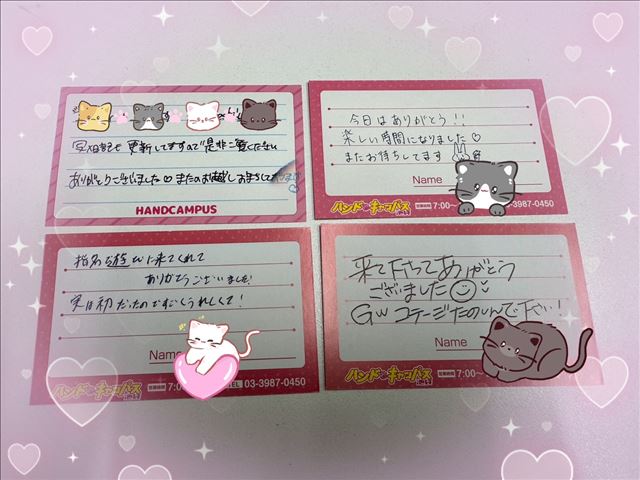 更新してますので是非ご覧ください
ありがとうございました♡またのお越しお待ちしてます
HANDCAMPUS
今日はありがとう!!
楽しい時間になりました♡
またお待ちしてます
Name
ハンド キャンパス
7:00~
3-3987-0450
指名遊びに来てくれて
ありがとうございました!
実は初だったのですごくうれしくて!
Name
ハンド キャンパス
7:0
TEL 03-3987-0450
来て下さってありがとう
ございました
GWコテージたのしんで下さい!
Name
ハンド キャンパス
7:00~
3987-0450